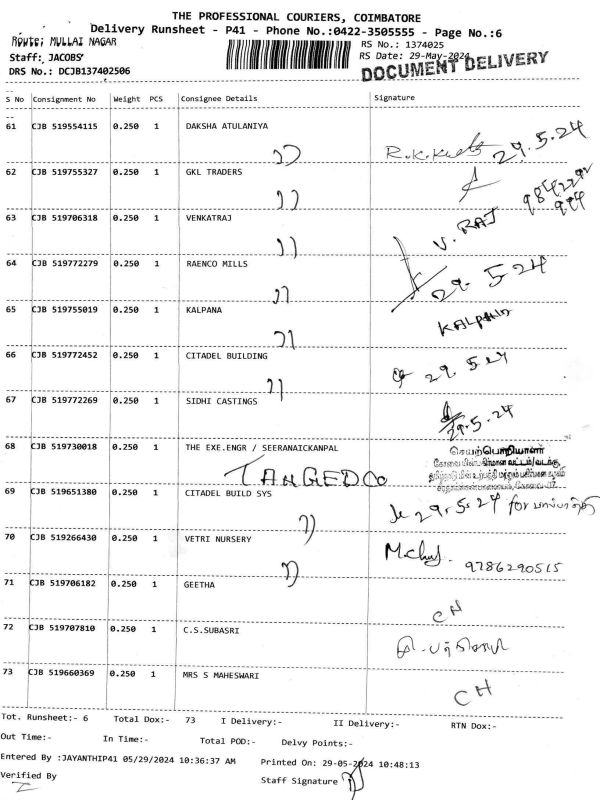 THE PROFESSIONAL COURIERS, COIMBATORE
Delivery Runsheet - P41 - Phone No.:0422-3505555 - Page No.:6
Route: MULLAI NAGAR
RS No.: 1374025
Staff: JACOBS
RS Date: 29-May-2024
DRS No.: DCJB137402506
DOCUMENT DELIVERY
S No Consignment No Weight PCS Consignee Details Signature
61 CJB 519554115 0.250 1 DAKSHA ATULANIYA
29.5.24
62 CJB 519755327 0.250 1 GKL TRADERS
63 CJB 519706318 0.250 1 VENKATRAJ
V. RAJ
64 CJB 519772279 0.250 1 RAENCO MILLS
29. 5 24
65 CJB 519755019 0.250 1 KALPANA
KALPANA
66 CJB 519772452 0.250 1 CITADEL BUILDING
29. 5 24
67 CJB 519772269 0.250 1 SIDHI CASTINGS
29.5.24
68 CJB 519730018 0.250 1 THE EXE.ENGR / SEERANAICKANPAL
TANGEDCO
செயற்பொறியாளர்
69 CJB 519651380 0.250 1 CITADEL BUILD SYS
29.5.24 for
70 CJB 519266430 0.250 1 VETRI NURSERY
9786290515
71 CJB 519706182 0.250 1 GEETHA
CH
72 CJB 519707810 0.250 1 C.S.SUBASRI
73 CJB 519660369 0.250 1 MRS S MAHESWARI
CH
Tot. Runsheet:- 6 Total Dox:- 73 I Delivery:- II Delivery:- RTN Dox:-
Out Time:- In Time:- Total POD:- Delvy Points:-
Entered By :JAYANTHIP41 05/29/2024 10:36:37 AM Printed On: 29-05-2024 10:48:13
Verified By Staff Signature